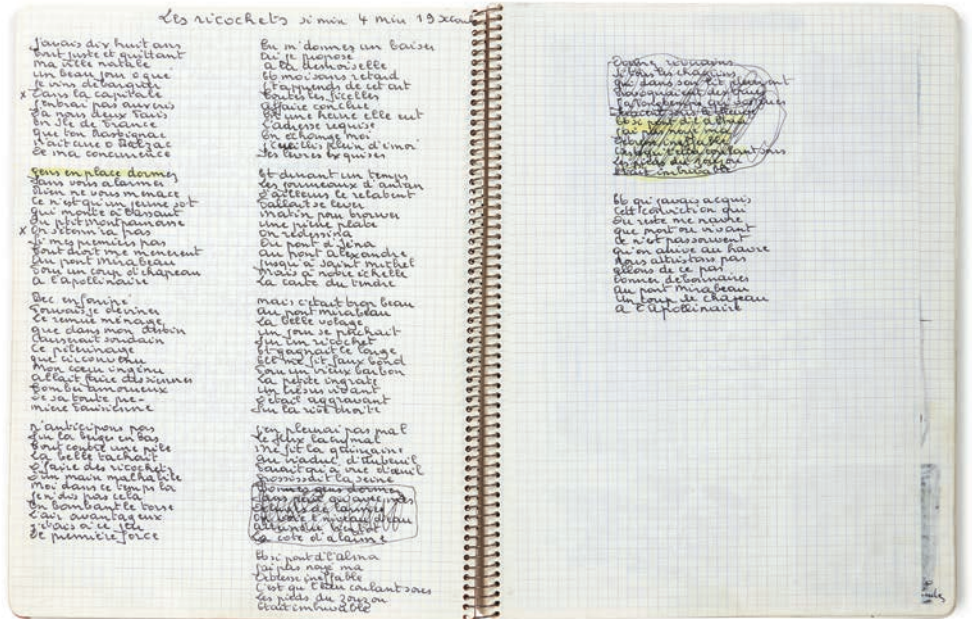 Les ricochets si min 4 min 19 secondes
J'avais dix huit ans
Tout juste et quittant
Ma ville natale
Un beau jour o gué
Je vins débarquer
x Dans la capitale
J'entrai pas aux cris
D'à nous deux Paris
En Ile de France
Que ton Rastignac
N'ait cure o Balzac
De ma concurrence
Gens en place dormez
Sans vous alarmer
Rien ne vous menace
Ce n'est qu'un jeune sot
Qui monte à l'assaut
Du p'tit Montparnasse
x On s'étonn'ra pas
Si mes premiers pas
Tout droit me menèrent
Au pont Mirabeau
Pour un coup d'chapeau
A l'Apollinaire
Bec enfariné
Pouvais je deviner
Le remue ménage
Que dans mon destin
Causerait soudain
Ce pèlerinage
Que circonvenu
Mon cœur ingénu
Allait faire des siennes
Tomber amoureux
De sa toute pre-
mière Parisienne
N'anticipons pas
Sur la berge en bas
Tout contre une pile
La belle tâchait
D'faire des ricochets
D'un main malhabile
Moi dans ce temps là
Je n'dis pas cela
En bombant le torse
L'air avantageux
J'étais à ce jeu
De première force
Tu m'donnes un baiser
Ai' je proposé
A la demoiselle
Et moi sans retard
J't'apprends de cet art
Toutes les ficelles
Affaire conclue
En une heure elle eut
L'adresse requise
En échange moi
J'cueillis plein d'émoi
Ses lèvres exquises
Et durant un temps
Les journeaux d'antan
D'ailleurs le relatent
Fallait se lever
Matin pour trouver
Une pierre plate
On redessina
Du pont d'Iéna
Au pont Alexandre
Jusqu'à Saint Michel
Mais à notre échelle
La carte du tendre
Mais c'était trop beau
Au pont Mirabeau
La belle volage
Un jour se perchait
Sur un ricochet
Et gagnait le large
Ell me fit faux bond
Pour un vieux barbon
La petite ingrate
Un Crésus vivant
Détail aggravant
Sur la rive droite
J'en pleurai pas mal
Le flux lacrymal
Me fit la quinzaine
Au viaduc d'Auteuil
Paraît qu'à vue d'œil
Grossissait la Seine
Bonnes gens dormez
la cote d'alarme
Et si pont d'l'Alma
J'ai pas noyé ma
Détresse ineffable
C'est qu'l'eau coulant sous
Les pieds du zouzou
Etait imbuvable
qui dans son lit
Et si pont d'l'Alma
J'ai pas noyé ma
Détresse ineffable
C'est qu'l'eau coulant sous
Les pieds du zouzou
Etait imbuvable
Et qu' j'avais acquis
Cett' conviction qui
Du reste me navre
Que mort ou vivant
Ce n'est pas souvent
Qu'on arrive au havre
Nous attristons pas
Allons de ce pas
Donner débonnaires
Au pont Mirabeau
Un coup de chapeau
A l'Apollinaire